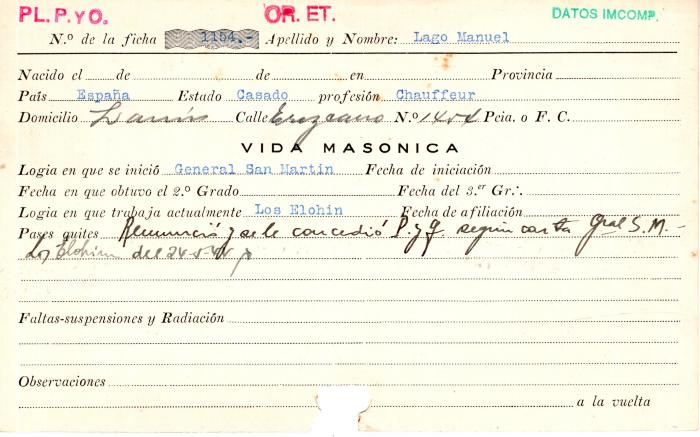 PL. P. Y O. OR. ET. DATOS IMCOMP.
N.º de la ficha 1154.- Apellido y Nombre: Lago Manuel
Nacido el de de en Provincia
País España Estado Casado profesión Chauffeur
Domicilio Lanús Calle N.º 1454 Pcia. o F. C.
VIDA MASONICA
Logia en que se inició General San Martin Fecha de iniciación:
Fecha en que obtuvo el 2.º Grado Fecha del 3.er Gr∴
Logia en que trabaja actualmente Los Elohin Fecha de afiliación:
Pases quites Renunció y se le concedió P. y q. según carta Gral S. M. -
Los Elohim del
Faltas-suspensiones y Radiación
Observaciones
a la vuelta